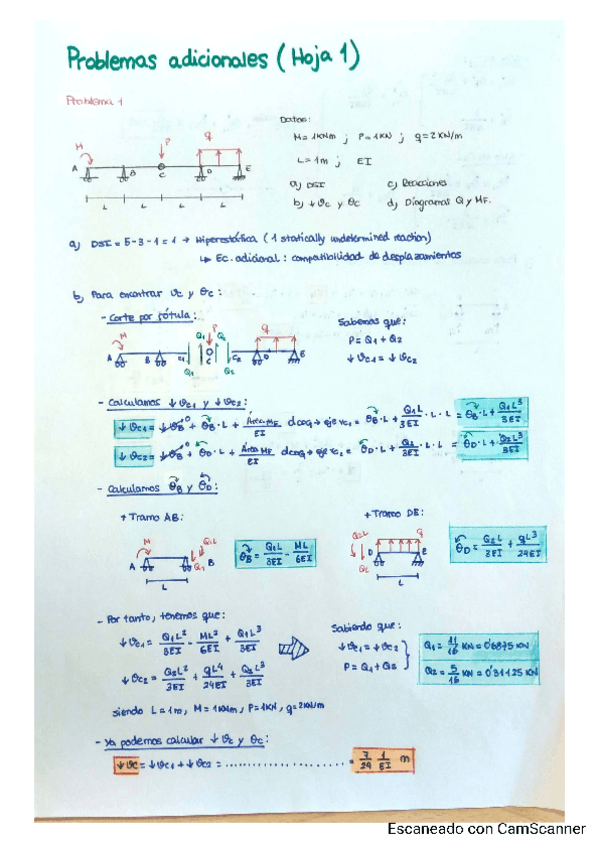 Problemas adicionales (Hoja 1)
Problema 1
Datos:
M = 1KNm ; P = 1KN ; q = 2KN/m
L = 1m ; EI
a) DSI
c) Reacciones
b) ↓vc y θc
d) Diagramas Q y MF.
M
P
q
A
B
C
D
E
L
L
L
L
a) DSI = 5-3-1 = 1 → Hiperestática (1 statically undetermined reaction)
↳ Ec. adicional: compatibilidad de desplazamientos
b) Para encontrar vc y θc:
- Corte por rótula:
Sabemos que:
P = Q1 + Q2
↓vc1 = ↓vc2
M
Q1
P
Q2
q
A
B
C1
C
C2
D
E
Q1
Q2
- Calculamos ↓vc1 y ↓vc2:
↓vc1 = ↓vB + θB·L + Área MF/EI dcdg→eje vc1 = θB·L + Q1L/2EI · L · L = θB·L + Q1L³/3EI
↓vc2 = ↓vD + θD·L + Área MF/EI dcdg→eje vc2 = θD·L + Q2/3EI · L · L = θD·L + Q2L³/3EI
- Calculamos θB y θD:
+ Tramo AB:
+ Tramo DE:
M
Q1L
A
Q1
B
L
θB = Q1L/3EI - ML/6EI
Q2L
q
D
E
Q2
L
θD = Q2L/3EI + qL³/24EI
- Por tanto, tenemos que:
↓vc1 = Q1L²/3EI - ML²/6EI + Q1L³/3EI
↓vc2 = Q2L²/3EI + qL⁴/24EI + Q2L³/3EI
Sabiendo que:
↓vc1 = ↓vc2
P = Q1 + Q2
Q1 = 11/16 KN = 0'6875 KN
Q2 = 5/16 KN = 0'31125 KN
siendo L = 1m, M = 1KNm, P = 1KN, q = 2KN/m
- Ya podemos calcular ↓vc y θc:
↓vc = ↓vc1 + ↓vc2 = ........................ = 7/24 1/EI m
Escaneado con CamScanner